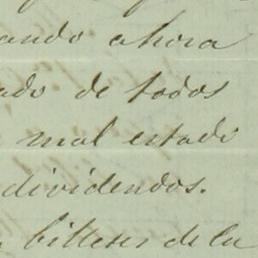 ando ahora
ado de todos
mal estado
dividendos.
billetes de la